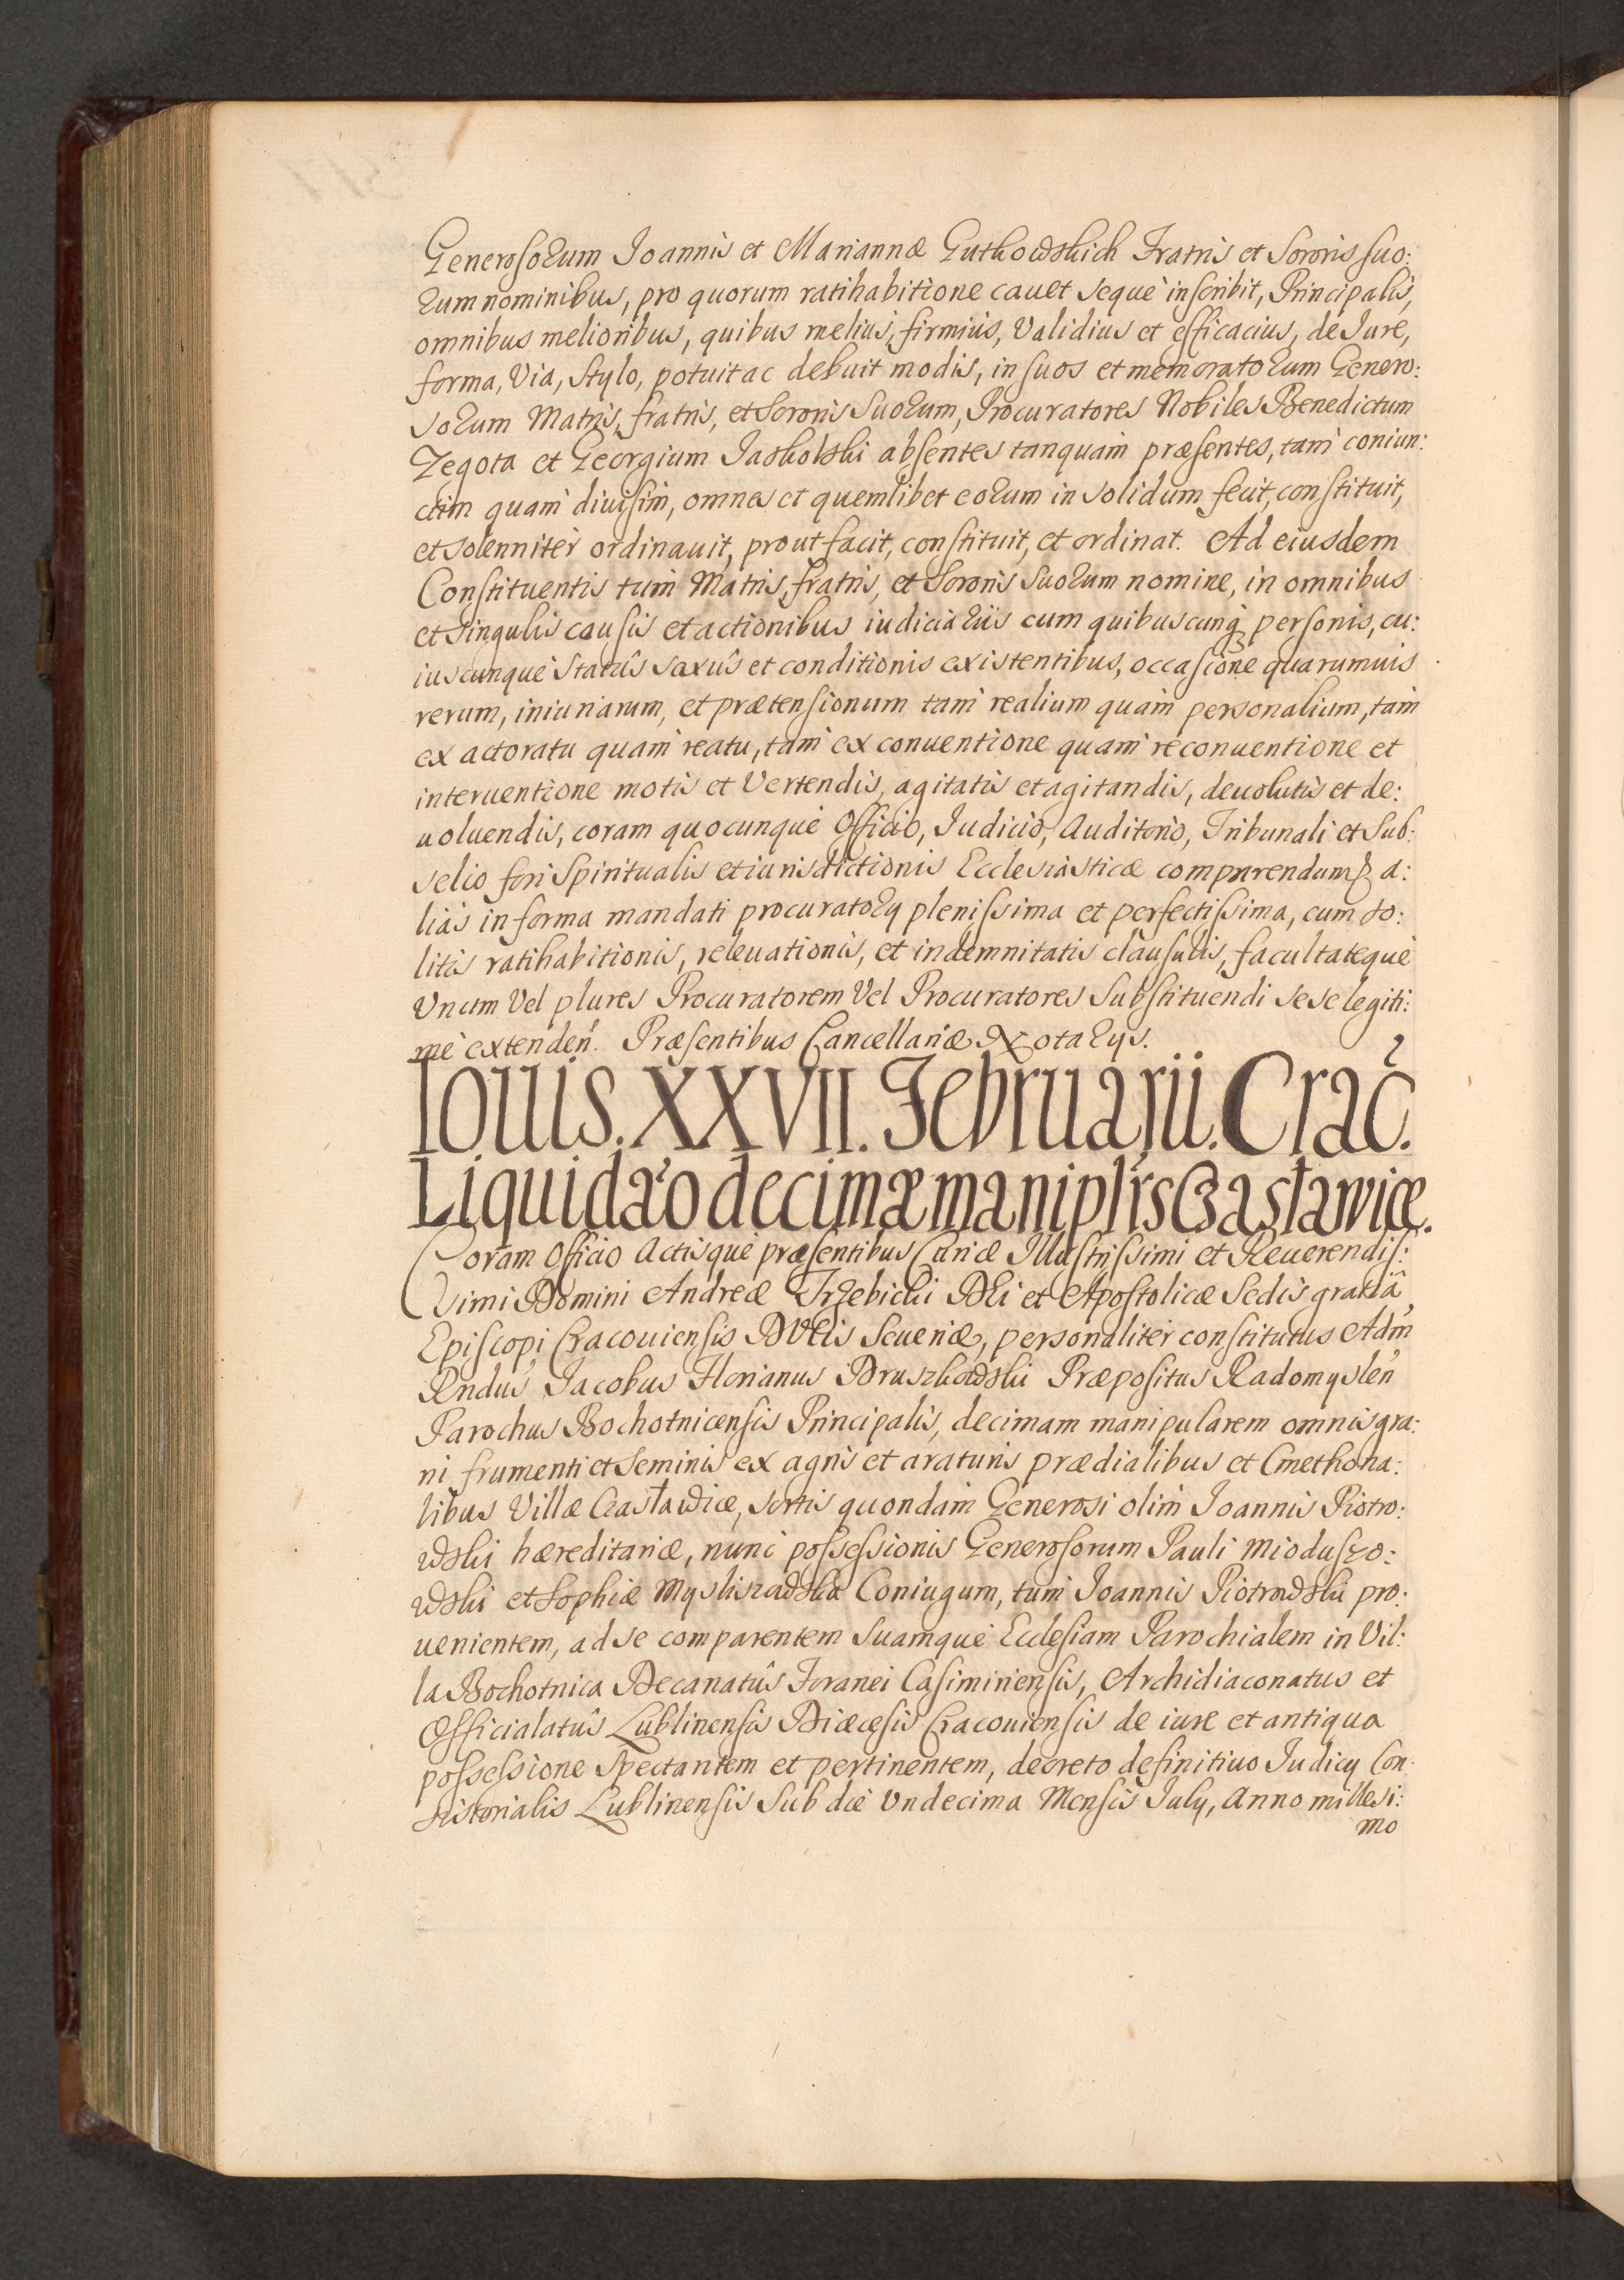 Generosorum Ioannis et Mariannæ Gutkowskich Fratris et Sororis suo:
rum nominibus, pro quorum ratihabitione cauet seque inscribit, Principalis,
omnibus melioribus, quibus melius, firmius, Validius et efficacius, de Iure,
forma, Via, Stylo, potuit ac debuit modis, in suos et memoratorum Genero:
sorum Matris, fratris, et Sororis Suorum, Procuratores Nobiles Benedictum
Zegota et Georgium Jaskolski absentes tanquam præsentes, tam coniun:
ctim quam diuisim, omnes et quemlibet eorum in solidum fecit, constituit,
et solenniter ordinauit, prout facit, constituit, et ordinat. Ad eiusdem
Constituentis tum Matris, fratris, et Sororis Suorum nomine, in omnibus
et singulis causis et actionibus iudiciariis cum quibuscunq personis, cu:
iuscunque Statûs sexûs et conditionis existentibus, occasione quarumuis
rerum, iniuriarum, et prætensionum tam realium quam personalium, tam
ex actoratu quam reatu, tam ex conuentione quam reconuentione et
interuentione motis et Vertendis, agitatis et agitandis, deuolutis et de:
uoluendis, coram quocunque Officio, Iudicio, Auditorio, Tribunali et Sub:
selio fori Spiritualis et iurisdictionis Ecclesiasticæ comparendum a:
lias in forma mandati procuratorij plenissima et perfectissima, cum so:
litis ratihabitionis, releuationis, et indemnitatis clausulis, facultateque
Vnum Vel plures Procuratorem Vel Procuratores Substituendi sese legiti:
me extenden. Præsentibus Cancellariæ Notarijs.
Iouis. XXVII. Februarii. Crac.
Liquidao decimæ maniplris Czastawice.
Coram Officio Actisque præsentibus Curiæ Illustrissimi et Reuerendis:
simi Domini Andreæ Trzebicki Dei et Apostolicæ Sedis gratiâ
Episcopi Cracouiensis Ducis Seueriæ, personaliter constitutus Adm
Rndus Jacobus Florianus Druszkowski Præpositus Radomyslen
Parochus Bochotnicensis Principalis, decimam manipularem omnis gra:
ni frumenti et Seminis ex agris et araturis prædialibus et Cmethona:
libus Villæ Czastawice, sortis quondam Generosi olim Ioannis Piotro:
wski hæreditariæ, nunc possessionis Generosorum Pauli Mioduszo:
wski et Sophiæ Mysliszewska Coniugum, tum Ioannis Piotrowski pro:
uenientem, ad se comparentem Suamque Ecclesiam Parochialem in Vil:
la Bochotnica Decanatûs Foranei Casimiriensis, Archidiaconatus et
Officialatûs Lublinensis Diæcesis Cracouiensis de iure et antiqua
possessione Spectantem et pertinentem, decreto definitiuo Iudicij Con:
sistorialis Lublinensis Sub die Vndecima Mensis July, Anno millesi:
mo